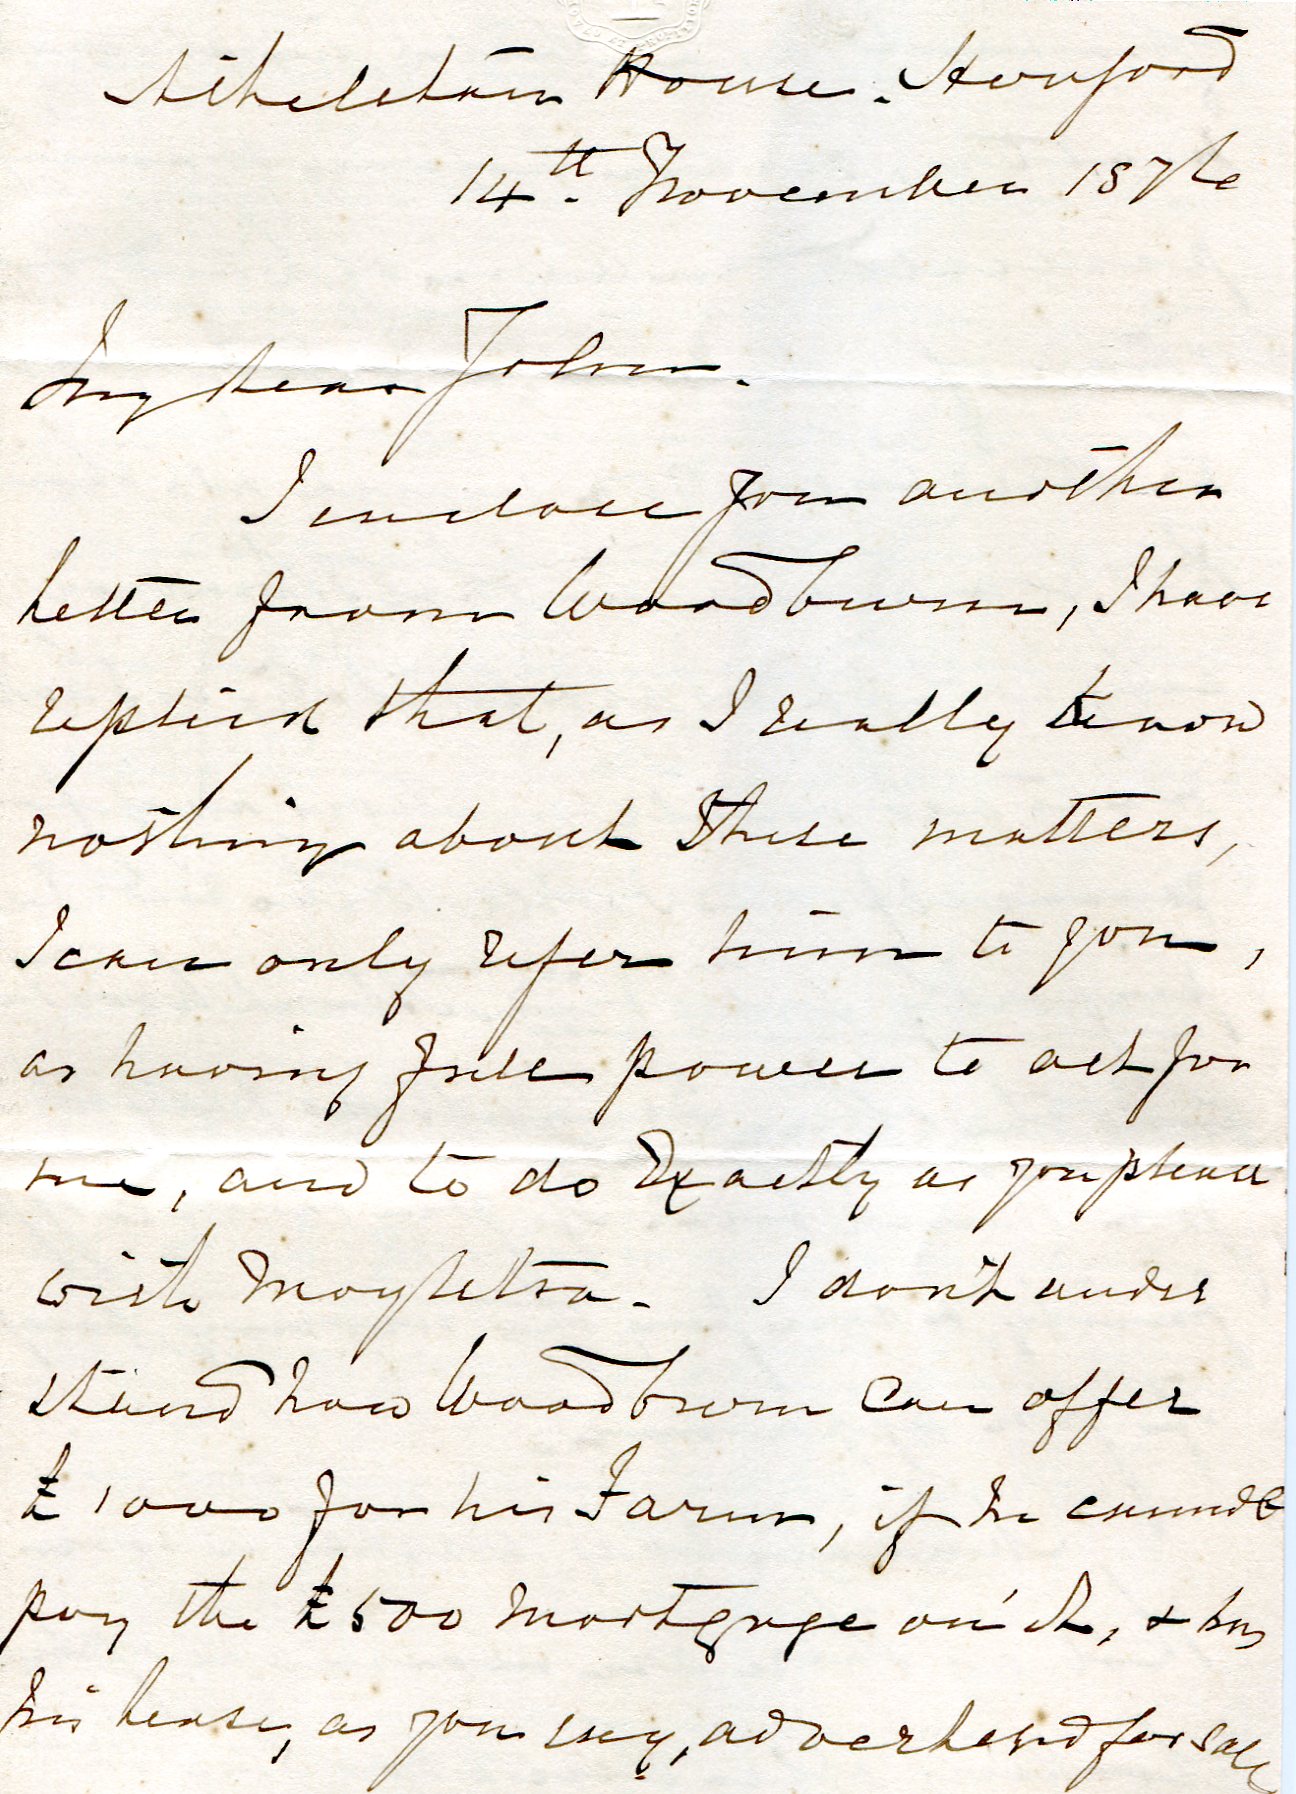 Athelstan House. Hereford
14th. November 1876
My dear John.
I enclose you another
letter from Woodburn, I have
replied that, as I really know
nothing about these matters,
I can only refer him to you,
as having full power to act for
me, and to do Exactly as you please
with Moyletra. I don't under
stand how Woodburn can offer
£1000 for his Farm, if he cannot
pay the £500 mortgage on it, & has
his lease, as you say, advertised for sale